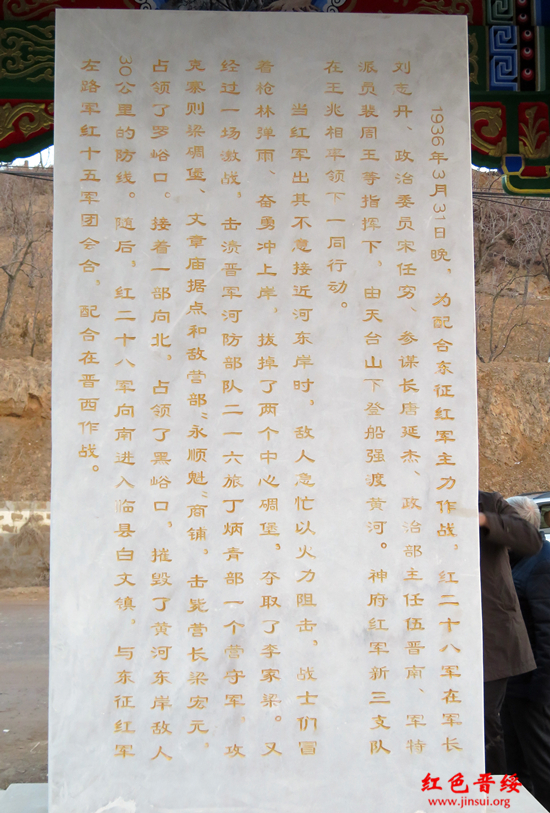 1936年3月31日晚，为配合东征红军主力作战，红二十八军在军长
刘志丹、政治委员宋任穷、参谋长唐延杰、政治部主任伍晋南、军特
派员裴周玉等指挥下，由天台山下登船强渡黄河。神府红军新三支队
在王兆相率领下一同行动。
当红军出其不意接近河东岸时，敌人急忙以火力阻击，战士们冒
着枪林弹雨、奋勇冲上岸，拔掉了两个中心碉堡，夺取了李家梁。又
经过一场激战，击溃晋军河防部队二一六旅丁炳青部一个营守军，攻
克寨则梁碉堡、文章庙据点和敌营部“永顺魁”商铺，击毙营长梁宏元，
占领了罗峪口。接着一部向北，占领了黑峪口，摧毁了黄河东岸敌人
30公里的防线。随后，红二十八军向南进入临县白文镇，与东征红军
左路军红十五军团会合，配合在晋西作战。
红色晋绥
www.jinsui.org